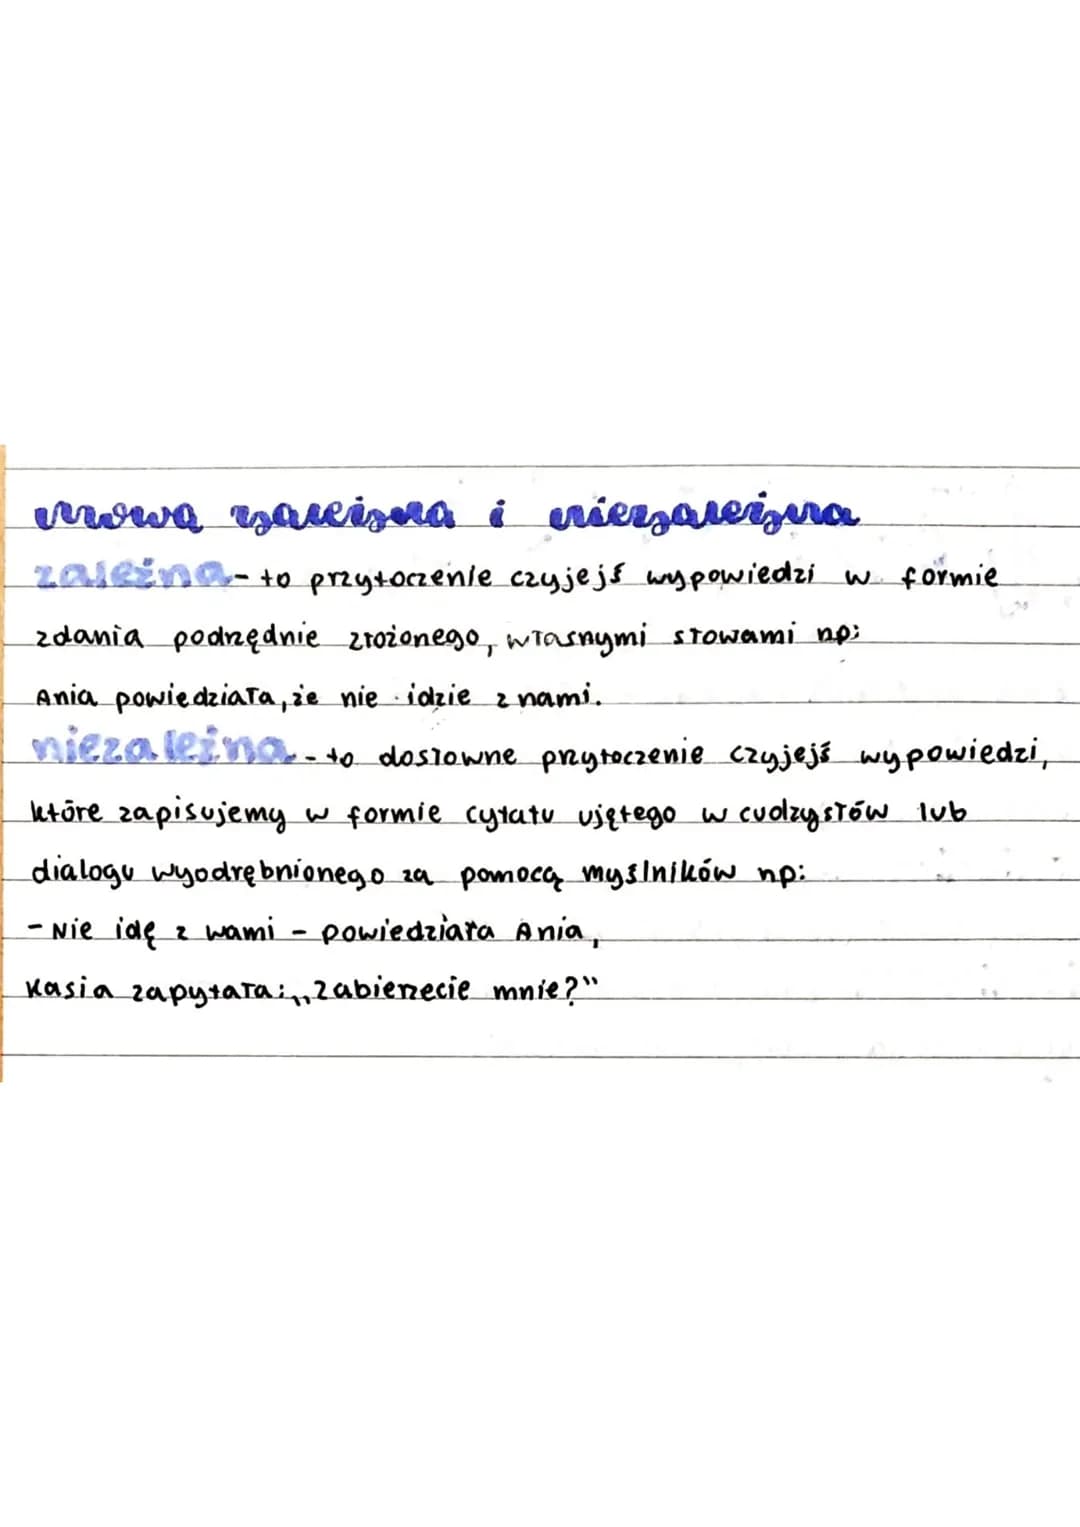 mowa zależna i niezależna
zależna - to przytoczenie czyjejś wypowiedzi w formie
zdania podrzędnie złożonego, własnymi słowami np:
Ania powiedziała, że nie idzie z nami.
niezależna - to dosłowne przytoczenie czyjejś wypowiedzi,
które zapisujemy w formie cytatu ujętego w cudzysłów lub
dialogu wyodrębnionego za pomocą myślników np:
- Nie idę z wami - powiedziała Ania,
Kasia zapytała: „Zabierzecie mnie?"